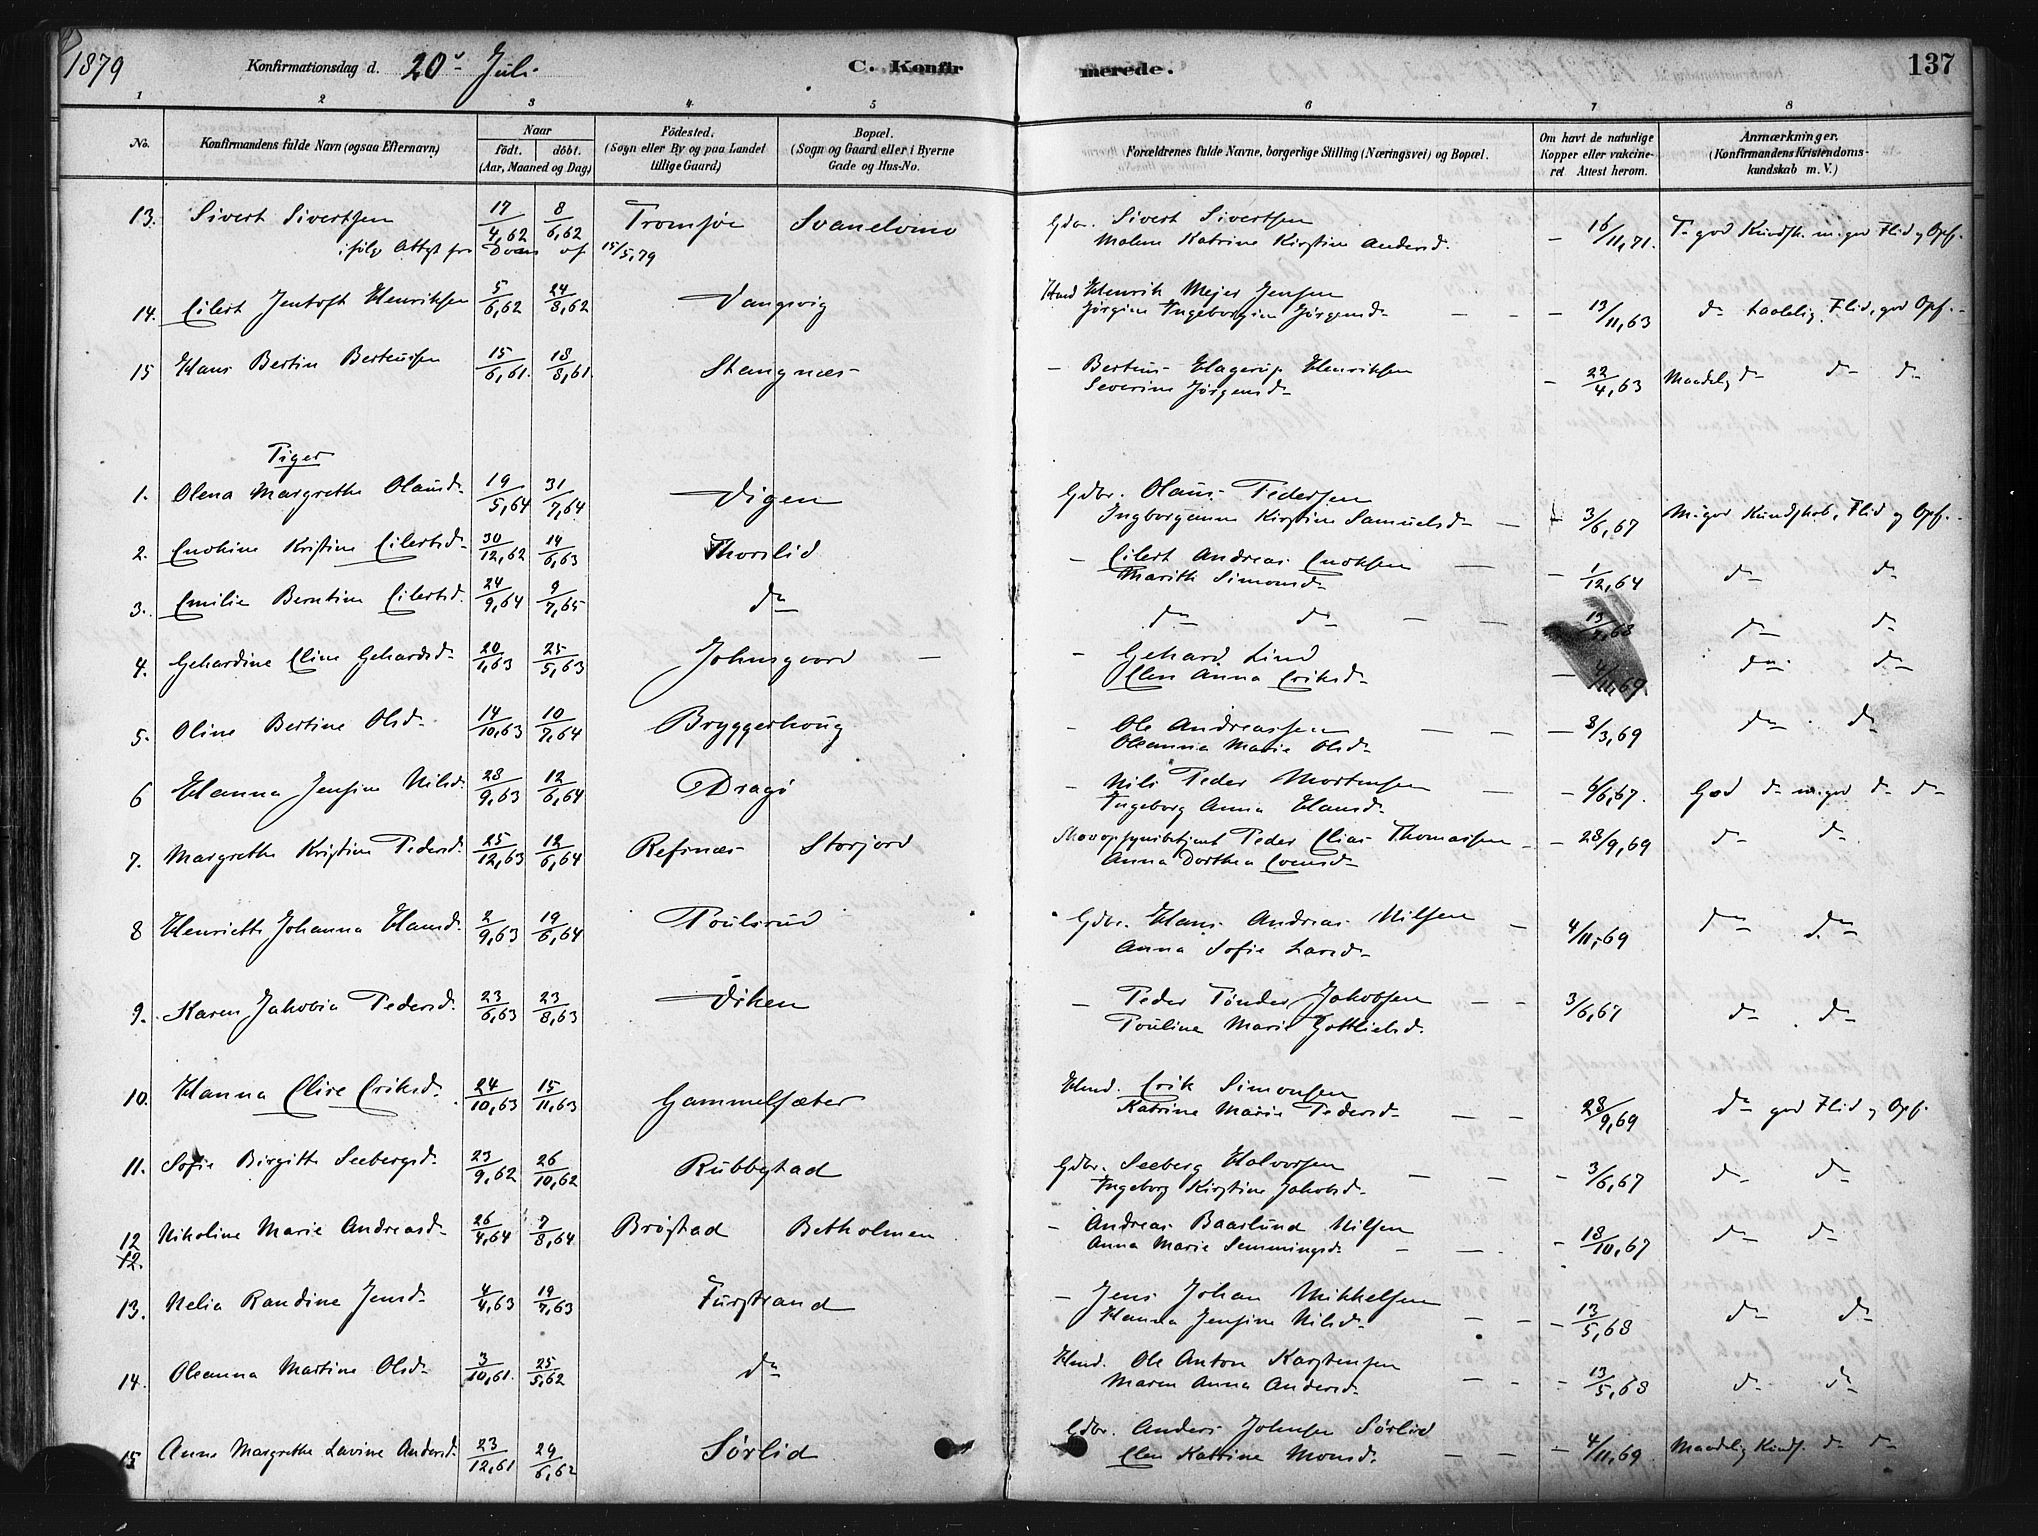 1879 Konfirmationsdag d. 20 Juli C. Konfirmerede. 137
1 2 3 4 5 6 7 8
No. Konfirmandens fulde Navn (ogsaa Efternavn) Naar født. døbt. (Aar, Maaned og Dag) Fødested. (Sogn eller By og paa Landet tillige Gaard) Bopæl. (Sogn og Gaard eller i Byerne Gade og Hus-No. Forældrenes fulde Navne, borgerlige Stilling (Næringsvei) og Bopæl. Om havt de naturlige Kopper eller vakcineret Attest herom. Anmærkninger. (Konfirmandens Kristendomskundskab m. V.)
13. Sivert Sivertsen 17/4,62 8/6,62 Tromsøe Svanelvmo Gdbr. Sivert Sivertsen – 16/11,71. T. god Kundsk. m. god Flid og Opf.
Malene Katrine Kirstine Andersd.
ifølg Attest fra af 15/5,79
14. Eilert Jentoft Henriksen 5/6,62 24/8,62 Vangsvig Hmd Henrik Mejer Jensen – 13/11,63 do taalelig Flid, god Opf.
Jørgine Ingeborgine Jørgensd.
15 Hans Bertin Berteussen 15/6,61. 18/8,61. Stangnæs – Berteus Hagerup Henriksen – 22/4,63 Maadelig do do do
Severine Jørgensd.
Piger
1. Olena Margrethe Olausd. 19/5,64 31/7,64 Vigen Gdbr. Olaus Pedersen 3/6,67 M. god Kundskab, Flid og Opf.
Ingborganna Kirstine Samuelsd.
2. Enokine Kristine Eilertsd. 30/12,62 14/6,63 Thorslid – Eilert Andreas Enoksen – 1/12,64 do do
Marith Simonsd.
3. Emilie Berntine Eilertsd. 24/9,64 9/7,65 do do do 13/ ,68 do do
4. Gehardine Eline Gehardsd. 20/1,63 25/5,63 Johnsgaard – Gehard Lind – 4/11,69 do do
Elen Anna Eriksd.
5. Oline Bertine Olsd. 14/10,63 10/7,64 Bryggerhoug – Ole Andreassen – 8/3,69 do do
Oleanna Marie Olsd.
6 Hanna Jensine Nilsd. 28/9,63 12/6,64 Dragø – Nils Peder Mortensen – 6/6,67. God do m. god do do
Ingeborg Anna Hansd.
7. Margrethe Kristine Pedersd. 25/12,63 12/6,64 Refsnæs Storjord Skovopsynsbetjent Peder Elias Thomassen – 28/9,69 do do
Anna Dorthea Evensd.
8 Henriette Johanna Hansd. 2/9,63 19/6,64 Poulsrud Gdbr. Hans Andreas Nilsen – 4/11,69 do do
Anna Sofie Larsd.
9. Karen Jakobia Pedersd. 23/6,63 23/8,63 Viken – Peder Tønder Jakobsen 3/6,67 do do
Pouline Marie Gottliebsd.
10. Hanna Elire Eriksd. 24/10,63 15/11,63 Gammelsæter Hmd. Erik Simonsen 28/9,69 do god Flid og Opf.
Katrine Marie Pedersd.
11. Sofie Birgitte Seebergsd. 23/9,62 26/10,62 Rubbestad Gdbr. Seeberg Halvorsen – 3/6,67 do do
Ingeborg Kirstine Jakobsd.
12 Nikoline Marie Andreasd. 26/4,64 7/8,64 Brøstad Betholmen – Andreas Baarlund Nilsen – 18/10,67 do do
12. Anna Marie Semmingsd.
13. Nelia Randine Jensd. 4/4,63 19/7,63 Furstrand – Jens Johan Mikkelsen – 13/5,68 do do
Hanna Jensine Nilsd.
14. Oleanna Martine Olsd. 3/10,61. 25/5,62 do Hmd. Ole Anton Karstensen – 13/5,68 do do
Maren Anna Andersd.
15 Anne Margrethe Lavine Andersd. 23/12,61 29/6,62 Sørlid Gdbr. Anders Johnsen Sørlid – 4/11,69 Maadelig Kunds. do do
Elen Katrine Monsd.